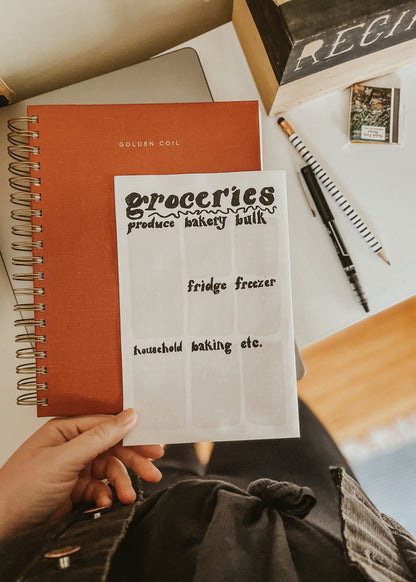 RECIP
GOLDEN COIL
groceries
produce bakery bulk
fridge freezer
household baking etc.